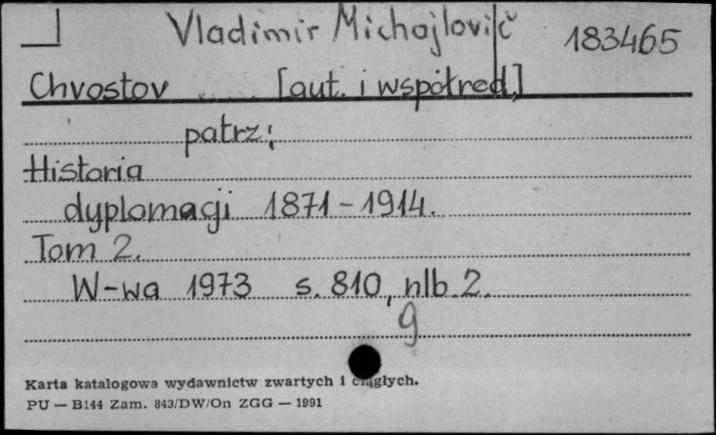 Vladimir Michajlovič 183465
Chvostov [aut. i współred.]
patrz:
Historia
dyplomacji 1871-1914.
Tom 2.
W-wa 1973 s. 810, nlb 2.
g
Karta katalogowa wydawnictw zwartych i ciągłych.
PU — B144 Zam. 843/DW/On ZGG — 1991